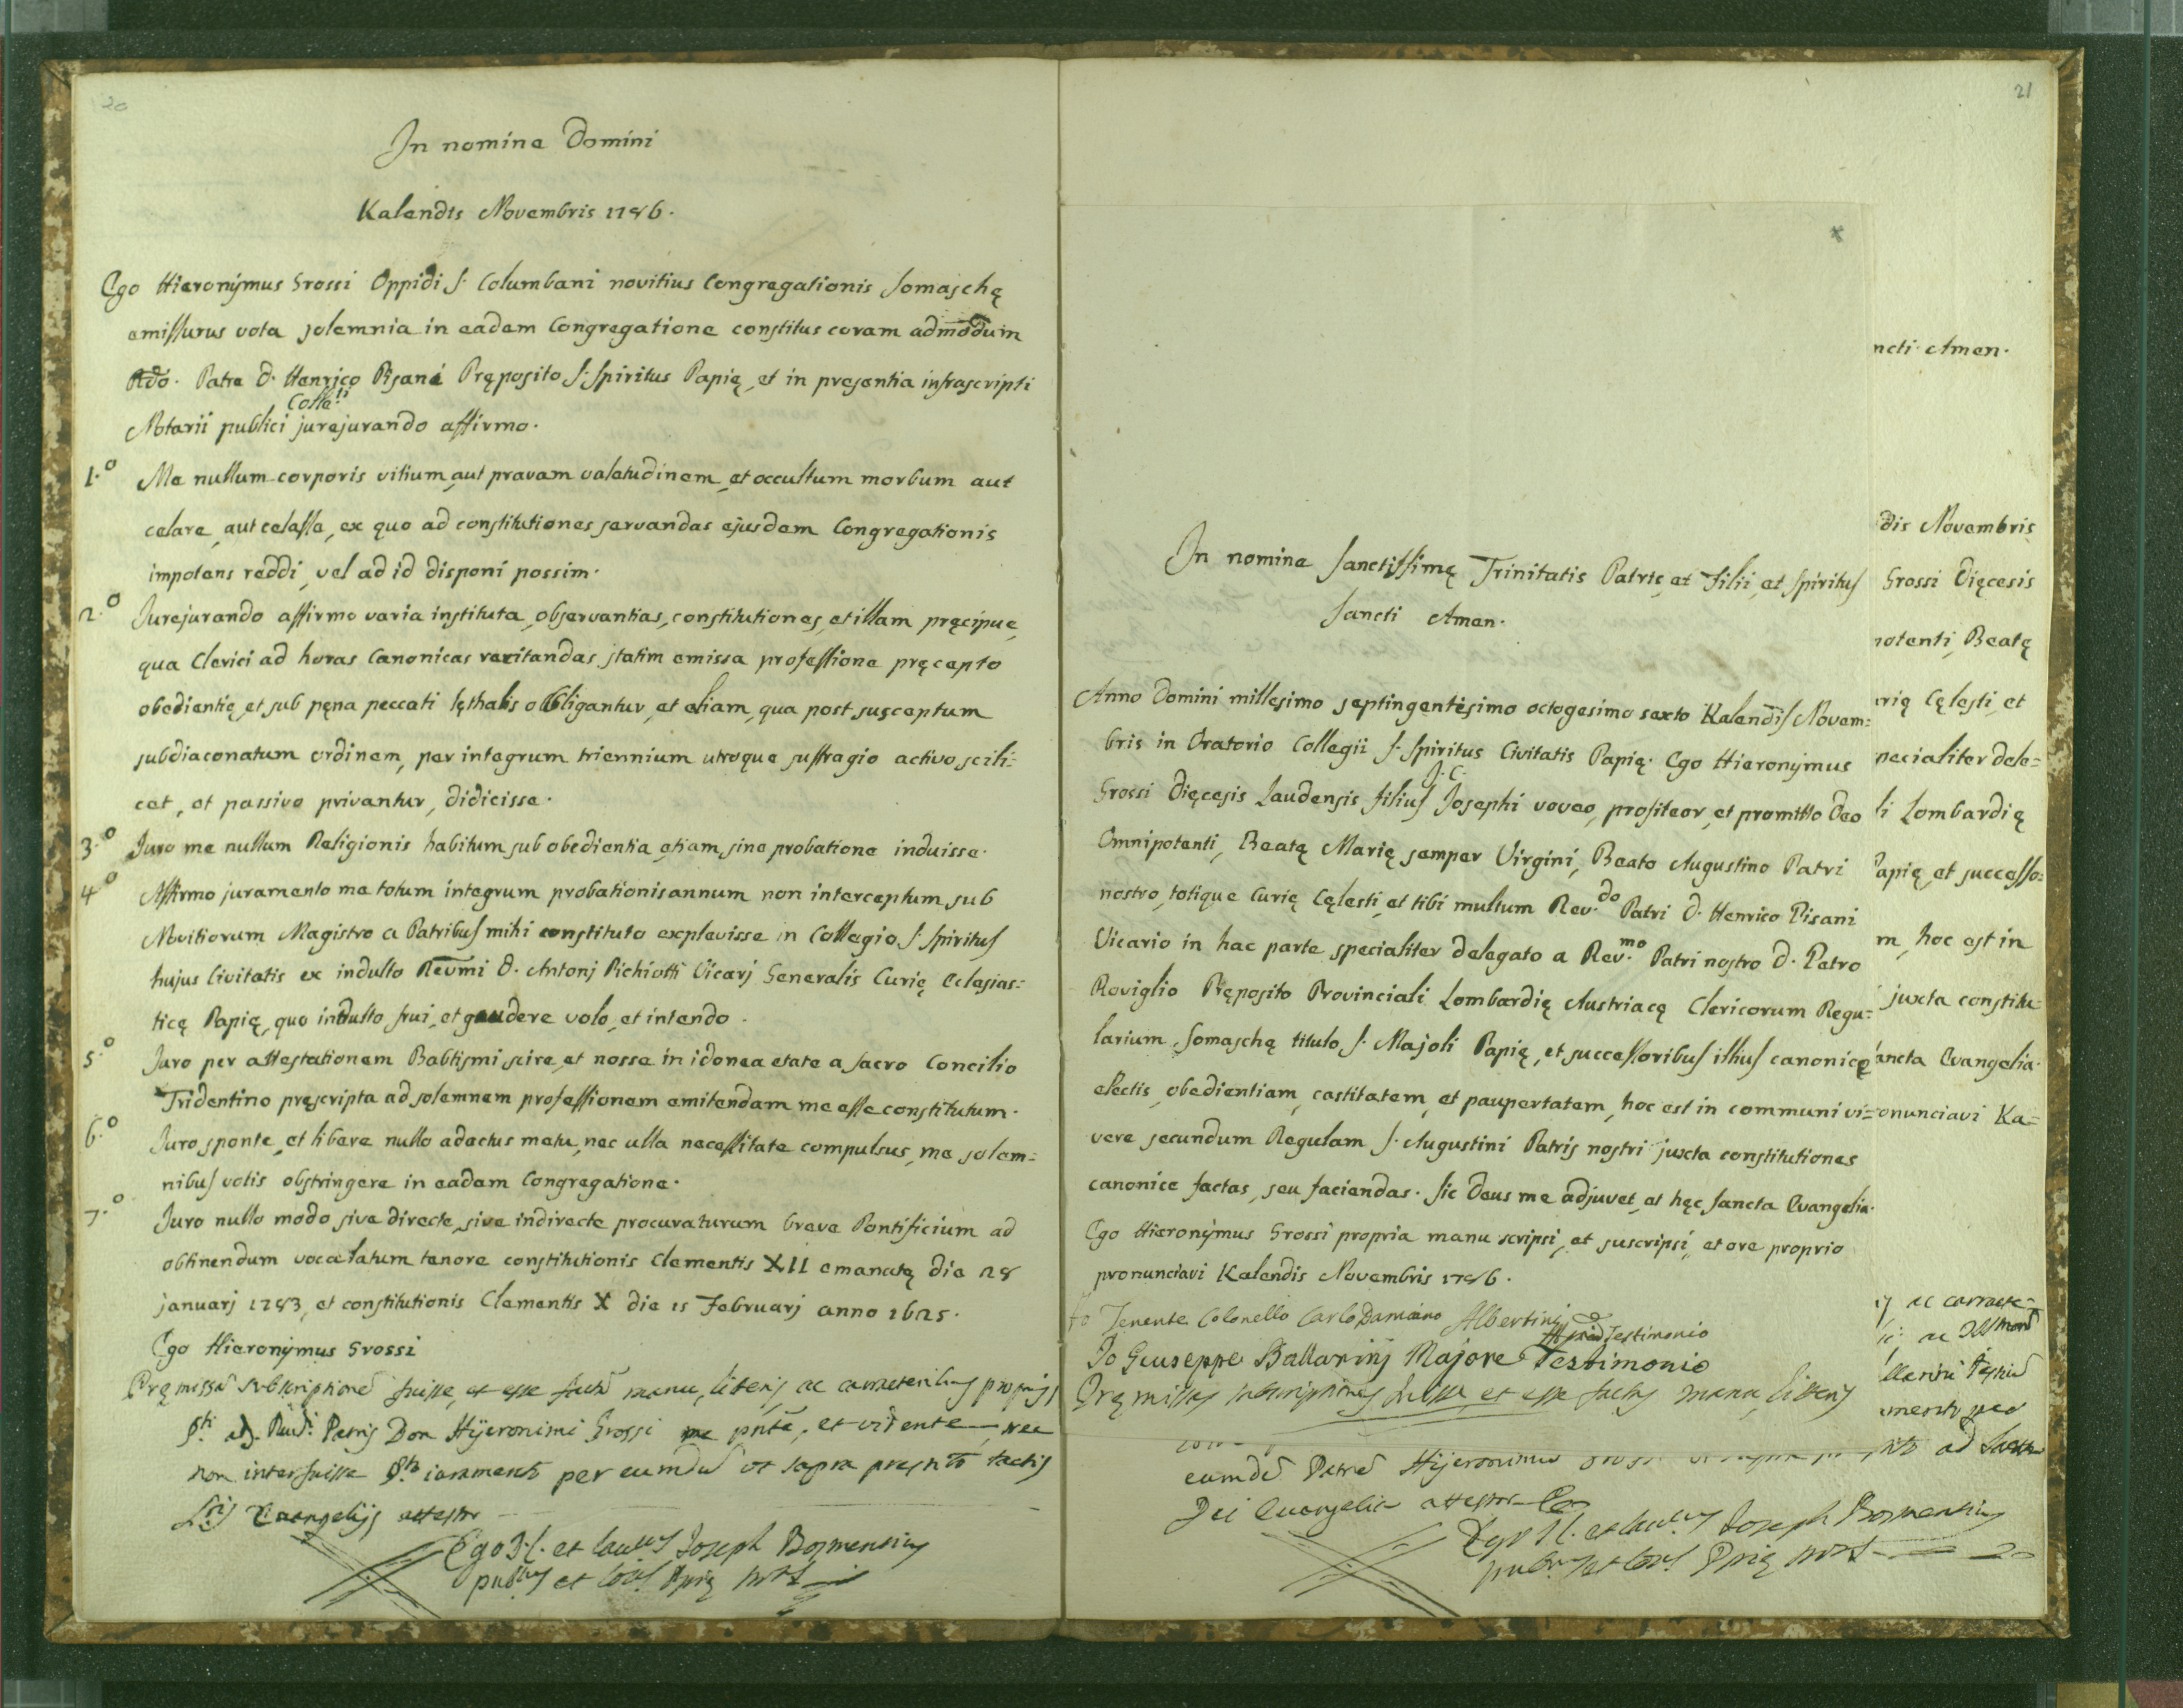 20
In nomine Domini
Kalendis Novembris 1786.
Ego Hieronÿmus Grossi Oppidi S. Columbani novitius Congregationis Somaschę
emissurus vota solemnia in eadem Congregatione constitus coram admodum
Rdo. Patre D. Henrico Pisani Pręposito S. Spiritus Papię, et in presentia infrascripti
Notarii publici jurejurando affirmo.
1.o Me nullum corporis vitium, aut pravam valetudinem, et occultum morbum aut
celare, aut celasse, ex quo ad constitutiones servandas ejusdem Congregationis
impotens reddi, vel ad id disponi possim.
2.o Jurejurando affirmo varia instituta, observantias, constitutiones, et illam pręcipue,
qua Clerici ad horas Canonicas recitandas statim emissa professione pręcepto
obedientię, et sub pęna peccati lęthalis obligantur, et etiam, qua post susceptum
subdiaconatum ordinem, per integrum triennium utroque suffragio activo scili=
cet, et passivo privantur, didicisse.
3.o Juro me nullum Religionis habitum sub obedientia etiam sine probatione induisse.
4o Affirmo juramento me totum integrum probationis annum non interceptum sub
Novitiorum Magistro a Patribus mihi constituto explevisse in Collegio S. Spiritus
hujus Civitatis ex indulto Reumi D. Antonj Pichiotti Vicarj Generalis Curię Eclesias=
ticę Papię, quo indulto frui, et gaudere volo, et intendo.
5.o Juro per attestationem Babtismi scire, et nosse in idonea etate a sacro Concilio
Tridentino pręscripta ad solemnem professionem emitendam me esse constitutum.
6.o Juro sponte, et libere nullo adactus metu, nec ulla necessitate compulsus, me solem=
nibus votis obstringere in eadem Congregatione.
7.o Juro nullo modo sive directe, sive indirecte procuraturum breve Pontificium ad
obtinendum vocalatum tenore constitutionis Clementis XII emanatę die 28
januarj 1783, et constitutionis Clementis X die 15 Februarj anno 1625.
Ego Hieronÿmus Grossi
Pręmissã subscriptionẽ fuisse, et esse factã manu, literis ac caracteribus proprijs
Patris Don Hijeronimi Grossi me pñte, et vidente, nec
non interfuisse juramento per eumdẽ ut supra prestito tactis
Evangelijs attestor
Ego J.C. et Joseph Bosmensius
21
In nomine Sanctissimę Trinitatis Patris, et Filii, et Spiritus
Sancti Amen.
Anno Domini millesimo septingentesimo octogesimo sexto Kalendis Novem=
bris in Oratorio Collegii S. Spiritus Civitatis Papię. Ego Hieronÿmus
Grossi Dięcesis Laudensis filius J. C. Josephi voveo, profiteor, et promitto Deo
Omnipotenti, Beatę Marię semper Virgini, Beato Augustino Patri
nostro, totique Curię Cęlesti, et tibi multum Rev.do Patri D. Henrico Pisani
Vicario in hac parte specialiter delegato a Rev.mo Patri nostro D. Petro
Roviglio Pręposito Provinciali Lombardię Austriacę Clericorum Regu=
larium Somaschę titulo S. Majoli Papię, et successoribus illius canonicę
electis, obedientiam, castitatem, et paupertatem, hoc est in communi vi=
vere secundum Regulam S. Augustini Patris nostri juxta constitutiones
canonice factas, seu faciendas. Sic Deus me adjuvet, et hęc Sancta Evangelia.
Ego Hieronÿmus Grossi propria manu scripsi, et suscripsi, et ore proprio
pronunciavi Kalendis Novembris 1786.
Jo Tenente Colonello Carlo Damiano Albertini Testimonio
Jo Giuseppe Ballarinj Majore Testimonio
Pręmissas subscriptiones fuisse, et esse factas manu, litteris
eumdẽ Patrẽ Hijeronimum
Dei Evangelia attestor
Ego J.C. et Joseph Bosmensius
ncti Amen.
dis Novembris
Grossi Dięcesis
notenti, Beatę
urię Cęlesti, et
pecialiter dele=
li Lombardię
Papię, et successo=
m, hoc est in
juxta constitu=
Sancta Evangelia.
onunciavi Ka=
ac caracte=